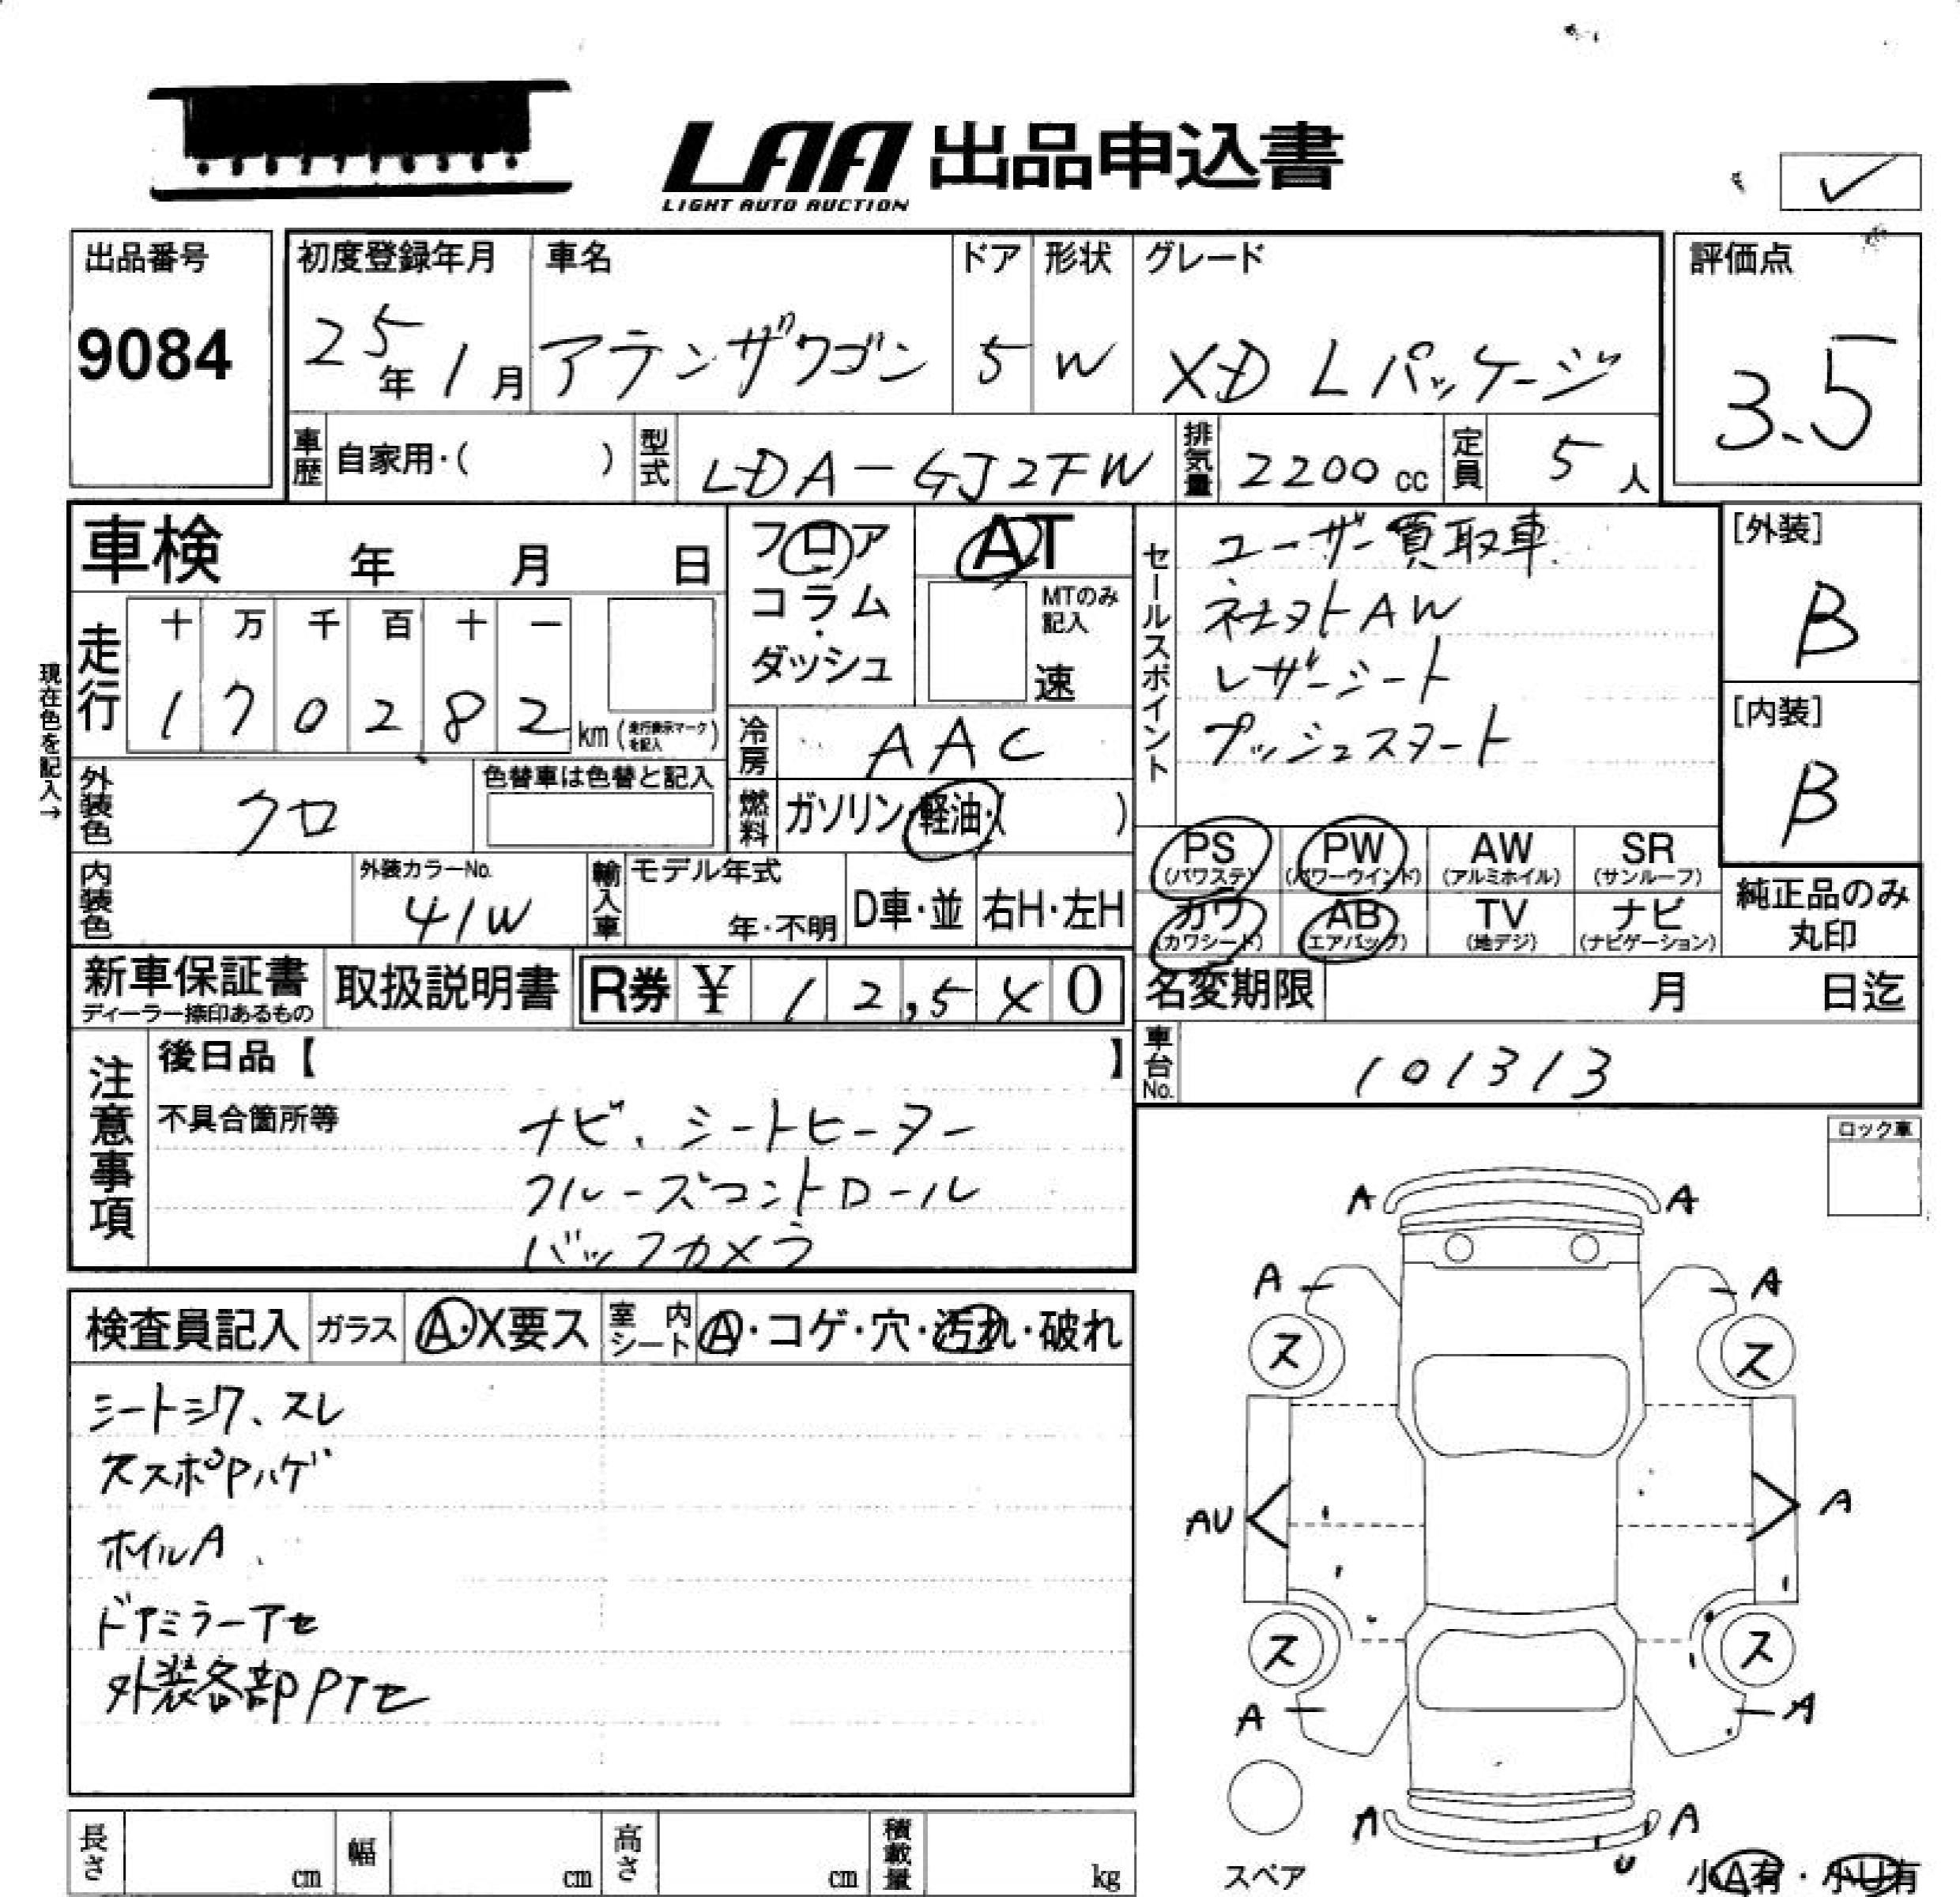 LAA 出品申込書
LIGHT AUTO AUCTION
✓
出品番号
9084
初度登録年月
25年1月
車名
アテンザワゴン
ドア
5
形状
W
グレード
XD Lパッケージ
評価点
3.5
車歴
自家用・( )
型式
LDA-GJ2FW
排気量
2200cc
定員
5人
車検 年 月 日
フロア
コラム
・
ダッシュ
AT
MTのみ
記入
速
現在色を記入→
走行
十 万 千 百 十 一
1 7 0 2 8 2 km(走行表示マークを記入)
冷房
AAC
外装色
クロ
色替車は色替と記入
燃料
ガソリン・軽油・( )
内装色
外装カラーNo.
41W
輸入車
モデル年式
年・不明
D車・並
右H・左H
新車保証書
ディーラー捺印あるもの
取扱説明書
R券 ¥ 12,5X0
セールスポイント
ユーザー買取車
社外AW
レザーシート
プッシュスタート
[外装]
B
[内装]
B
PS
(パワステ)
PW
(パワーウインド)
AW
(アルミホイル)
SR
(サンルーフ)
カワ
(カワシート)
AB
(エアバック)
TV
(地デジ)
ナビ
(ナビゲーション)
純正品のみ
丸印
名変期限 月 日迄
車台No.
101313
注意事項
後日品【 】
不具合箇所等
ナビ、シートヒーター
クルーズコントロール
バックカメラ
ロック車
検査員記入
ガラス
A・X要ス
室内
シート
A・コゲ・穴・汚れ・破れ
シートシワ、スレ
ススポPハゲ
ホイルA
ドアミラーアセ
外装各部PPアセ
A A
A A
ス ス
AU A
ス ス
A A
A A
U
スペア
小A有・小U有
長さ cm
幅 cm
高さ cm
積載量 kg